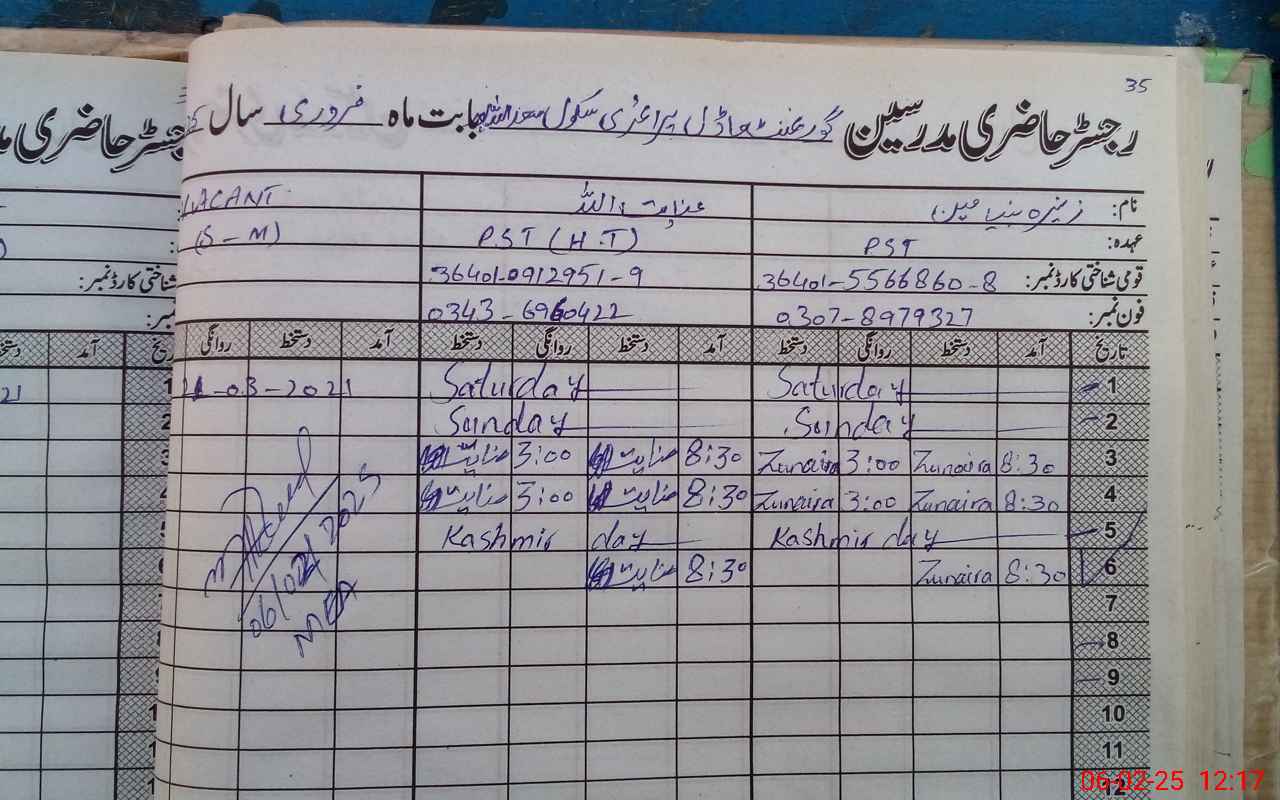 35
رجسٹر حاضری مدرسین گورنمنٹ ماڈل پرائمری سکول سعد اللہ بابت ماہ فروری سال
نام: زنیرہ بنیامین عنایت اللہ VACANT
عہدہ: PST PST (H.T) (S-M)
قومی شناختی کارڈ نمبر: 36401-5566860-8 36401-0912951-9
فون نمبر: 0307-8979327 0343-6960422
تاریخ آمد دستخط روانگی دستخط آمد دستخط روانگی دستخط آمد دستخط روانگی
1 Saturday Saturday -03-2021
2 Sunday Sunday
3 8:30 Zunaira 3:00 Zunaira 8:30 عنایت 3:00 عنایت
4 8:30 Zunaira 3:00 Zunaira 8:30 عنایت 3:00 عنایت
5 Kashmir day Kashmir day
6 8:30 Zunaira 8:30 عنایت
7
8
9
10
11
12
06/02/2025
MEA
رجسٹر حاضری
شناختی کارڈ نمبر:
نمبر:
آمد
21
06-02-25 12:17